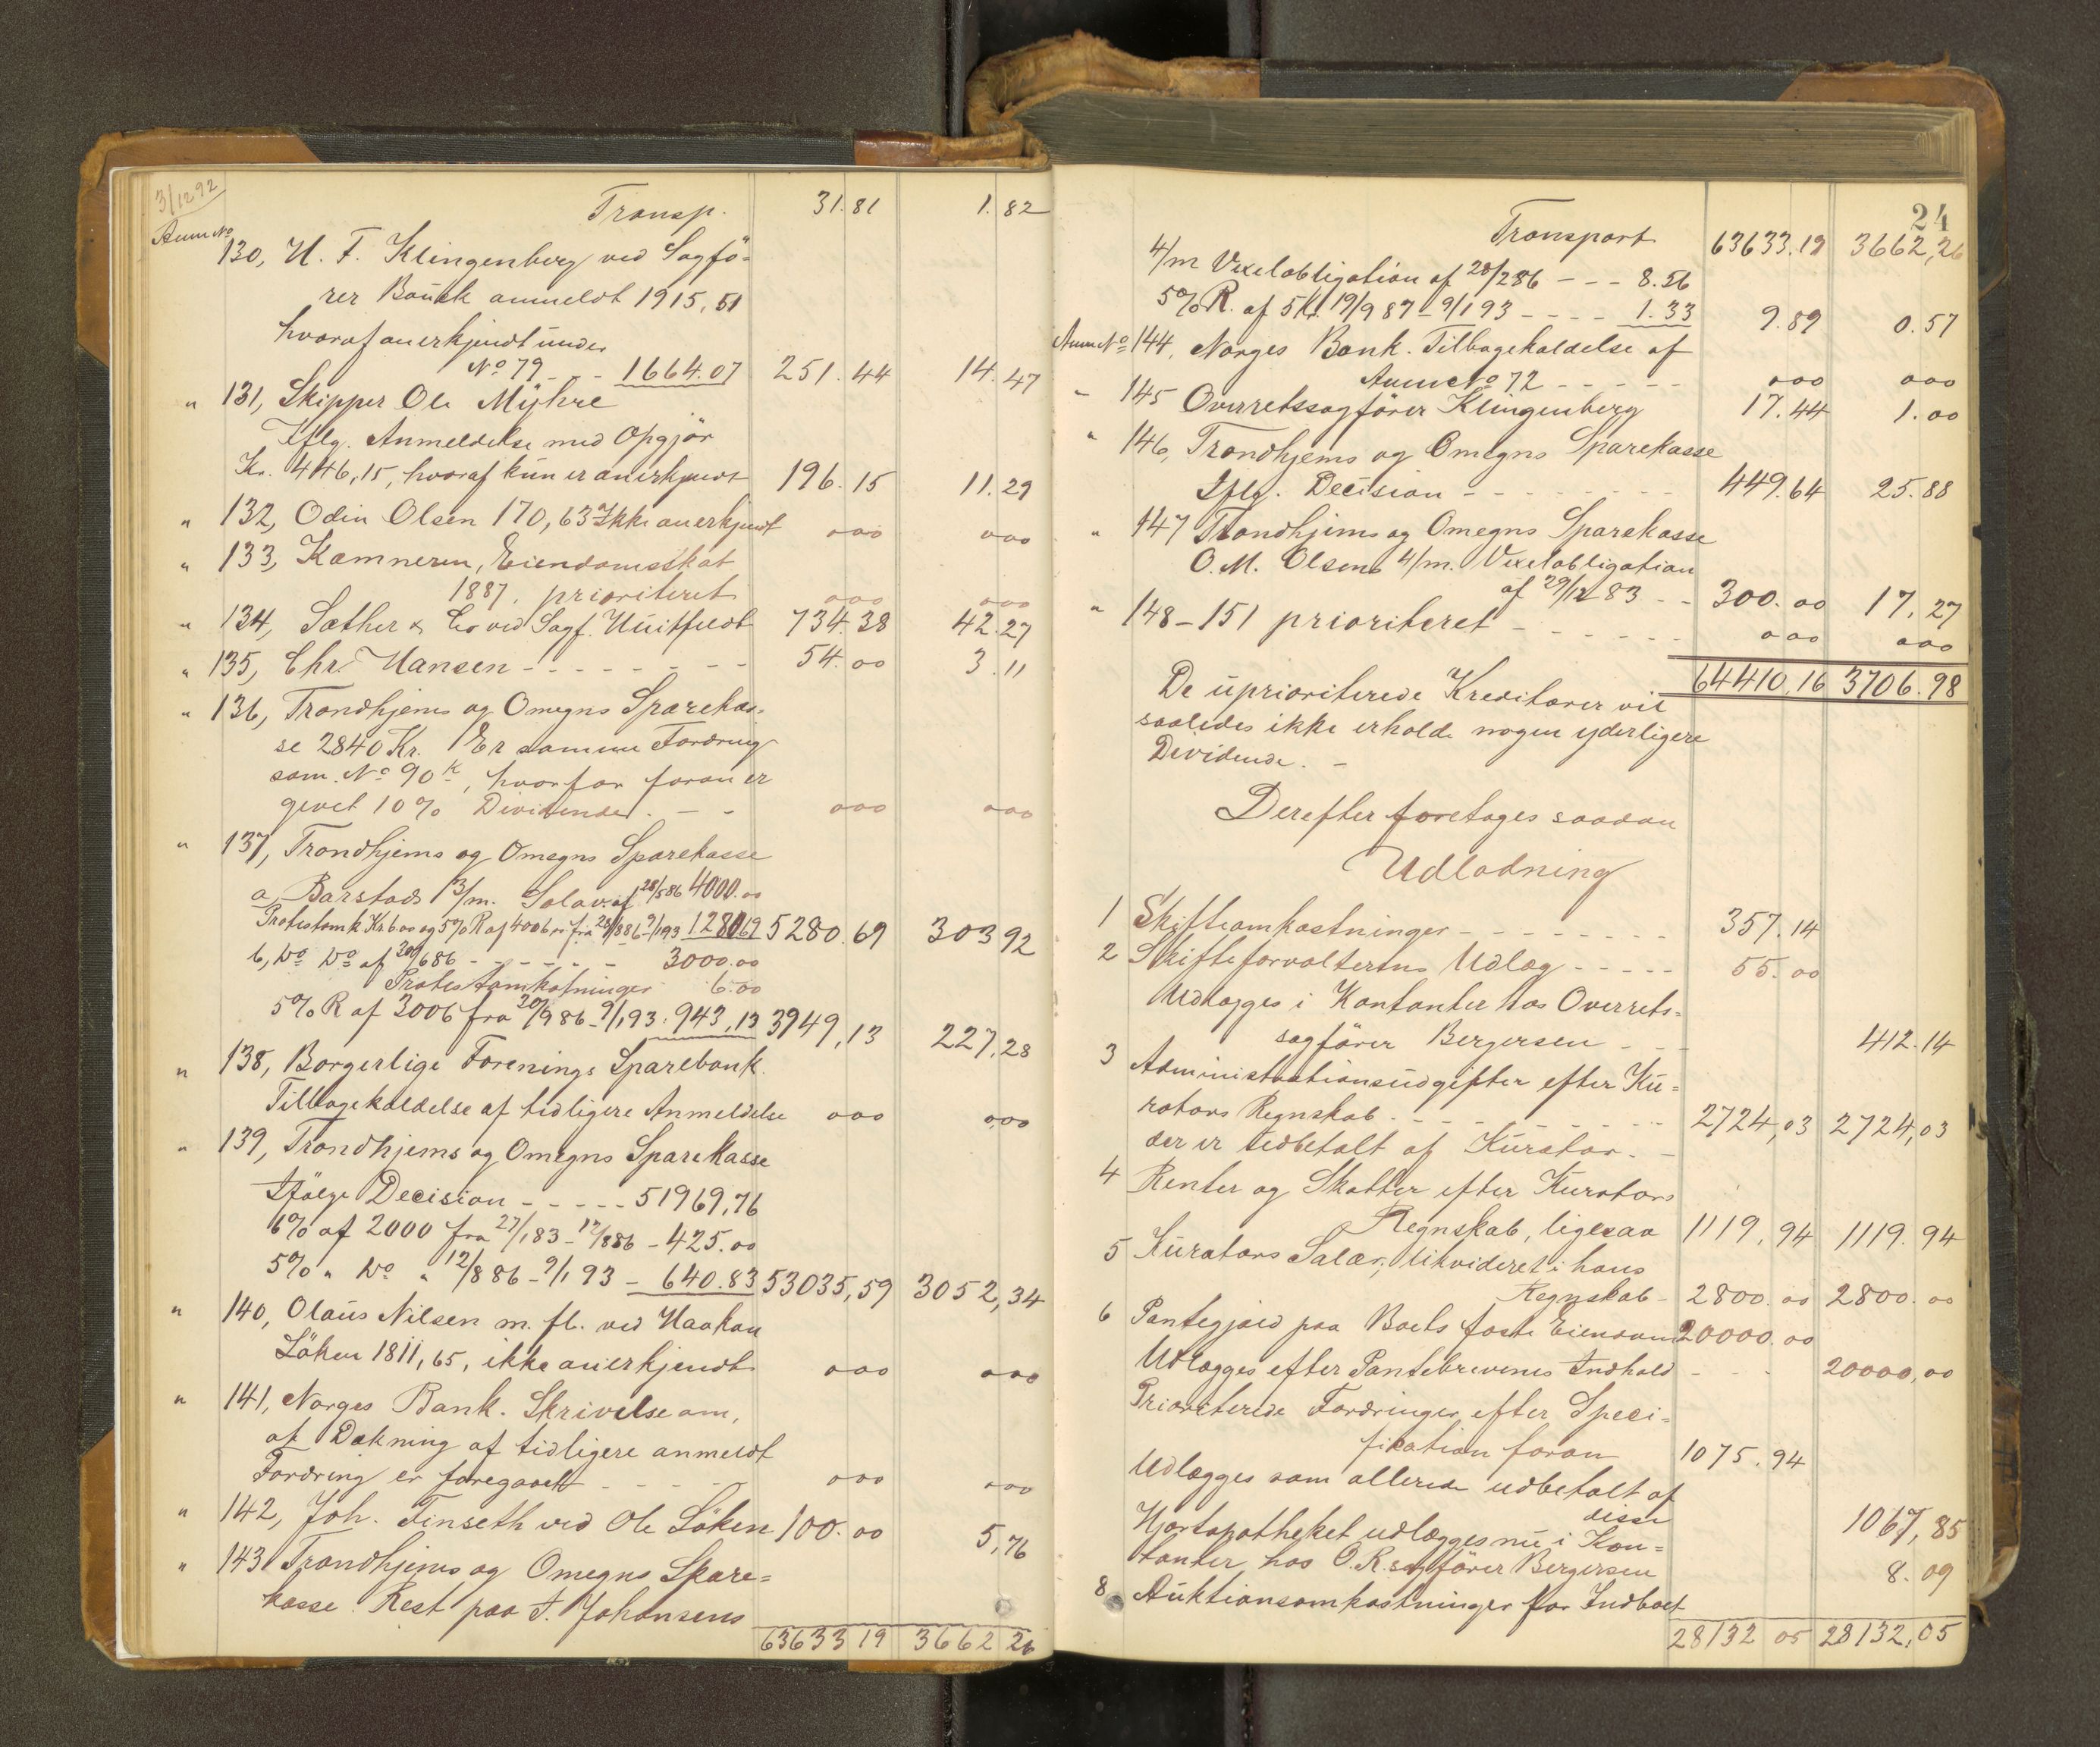 3/12 92
Transp. 31.81 1.82
Anm No
130, H. F. Klingenberg ved Sagfö-
rer Bauck anmeldt 1915,51
hvoraf anerkjendt under
No 79 - - 1664.07 251.44 14.47
" 131, Skipper Ole Mÿhre
Iflg. Anmeldelse med Opgjör
Kr. 446,15, hvoraf kun er anerkjendt 196.15 11.29
" 132, Odin Olsen 170,63 Ikke anerkjendt ooo ooo
" 133, Kæmneren, Eiendomsskat
1887. prioriteret ooo ooo
" 134, Sæther & Co ved Sagf. Huitfeldt 734.38 42.27
" 135, Chr. Hansen - - - - - - - - 54.00 3.11
" 136, Trondhjems og Omegns Sparekas-
se 2840 Kr. Er samme Fordring
som No 90 k, hvorfor foran er
givet 10% Dividende. - - ooo ooo
" 137, Trondhjems og Omegns Sparekasse
a, Barstads 13/m. Solav. af 28/5 86 4000.00
Protestomk Kr 6.00 og 5% R af 4006 fra 28/8 86-9/1 93 1280.69 5280.69 303 92
b, Do Do af 20/6 86 - - - - - - 3000.00
Protestomkostninger 6.00
5% R af 3006 fra 20/9 86-9/1 93. 943,13 3949,13 227,28
" 138, Borgerlige Forenings Sparebank.
Tilbagekaldelse af tidligere Anmeldelse ooo ooo
" 139, Trondhjems og Omegns Sparekasse
Ifölge Decision - - - - - 51969,76
6% af 2000 fra 27/1 83-12/8 86 - 425.00
5% " Do " 12/8 86-9/1 93 - 640.83 53035,59 3052,34
" 140, Olaus Nilsen m. fl. ved Haakon
Löken 1811,65, ikke anerkjendt ooo ooo
" 141, Norges Bank. Skrivelse om,
at Dækning af tidligere anmeldt
Fordring er foregaaet - - - - ooo ooo
" 142, Joh. Finseth ved Ole Löken 100.00 5,76
" 143 Trondhjems og Omegns Spare-
kasse. Rest paa J. Johansens
63633 19 3662 26
24
Transport 63633.19 3662,26
4/m Vexelobligation af 28/2 86 - - - 8.56
5% R. af 5 Kr. 19/9 87-9/1 93 - - - - 1.33 9.89 0.57
Anm No 144, Norges Bank. Tilbagekaldelse af
Anm No 72 - - - - - ooo ooo
" 145 Overretssagförer Klingenberg 17.44 1.00
" 146, Trondhjems og Omegns Sparekasse
Iflg. Decision - - - - - - - - 449.64 25.88
" 147 Trondhjems og Omegns Sparekasse
O. M. Olsens 4/m. Vexelobligation
af 29/12 83 - - 300.00 17.27
" 148-151 prioriteret - - - - - - ooo ooo
64410.16 3706.98
De uprioriterede Kreditorer vil
saaledes ikke erholde nogen yderligere
Devidende. -
Derefter foretages saadan
Udlodning
1 Skifteomkostninger - - - - - - - - 357.14
2 Skifteforvalterens Udlæg - - - - - 55.00
Udlægges i Kontanter hos Overrets-
sagförer Bergersen - - - 412.14
3 Administrationsudgifter efter Ku-
rators Regnskab. - - - - - - - - 2724,03 2724,03
der er udbetalt af Kurator. -
4 Renter og Skatter efter Kurators
Regnskab, ligesaa 1119.94 1119.94
5 Kurators Salær, likvideret i hans
Regnskab - 2800.00 2800.00
6 Pantegjæld paa Boets faste Eiendom 20000.00
Udlægges efter Pantebrevenes Indhold - - - 20000,00
Prioriterede Fordringer efter Speci-
fikation foran 1075.94
Udlægges som allerede udbetalt af
disse 1067,85
Hjortapotheket udlægges nu i Kon-
tanter hos O.R.sagförer Bergersen 8.09
8 Auktionsomkostninger for Indboet
28132 05 28132,05